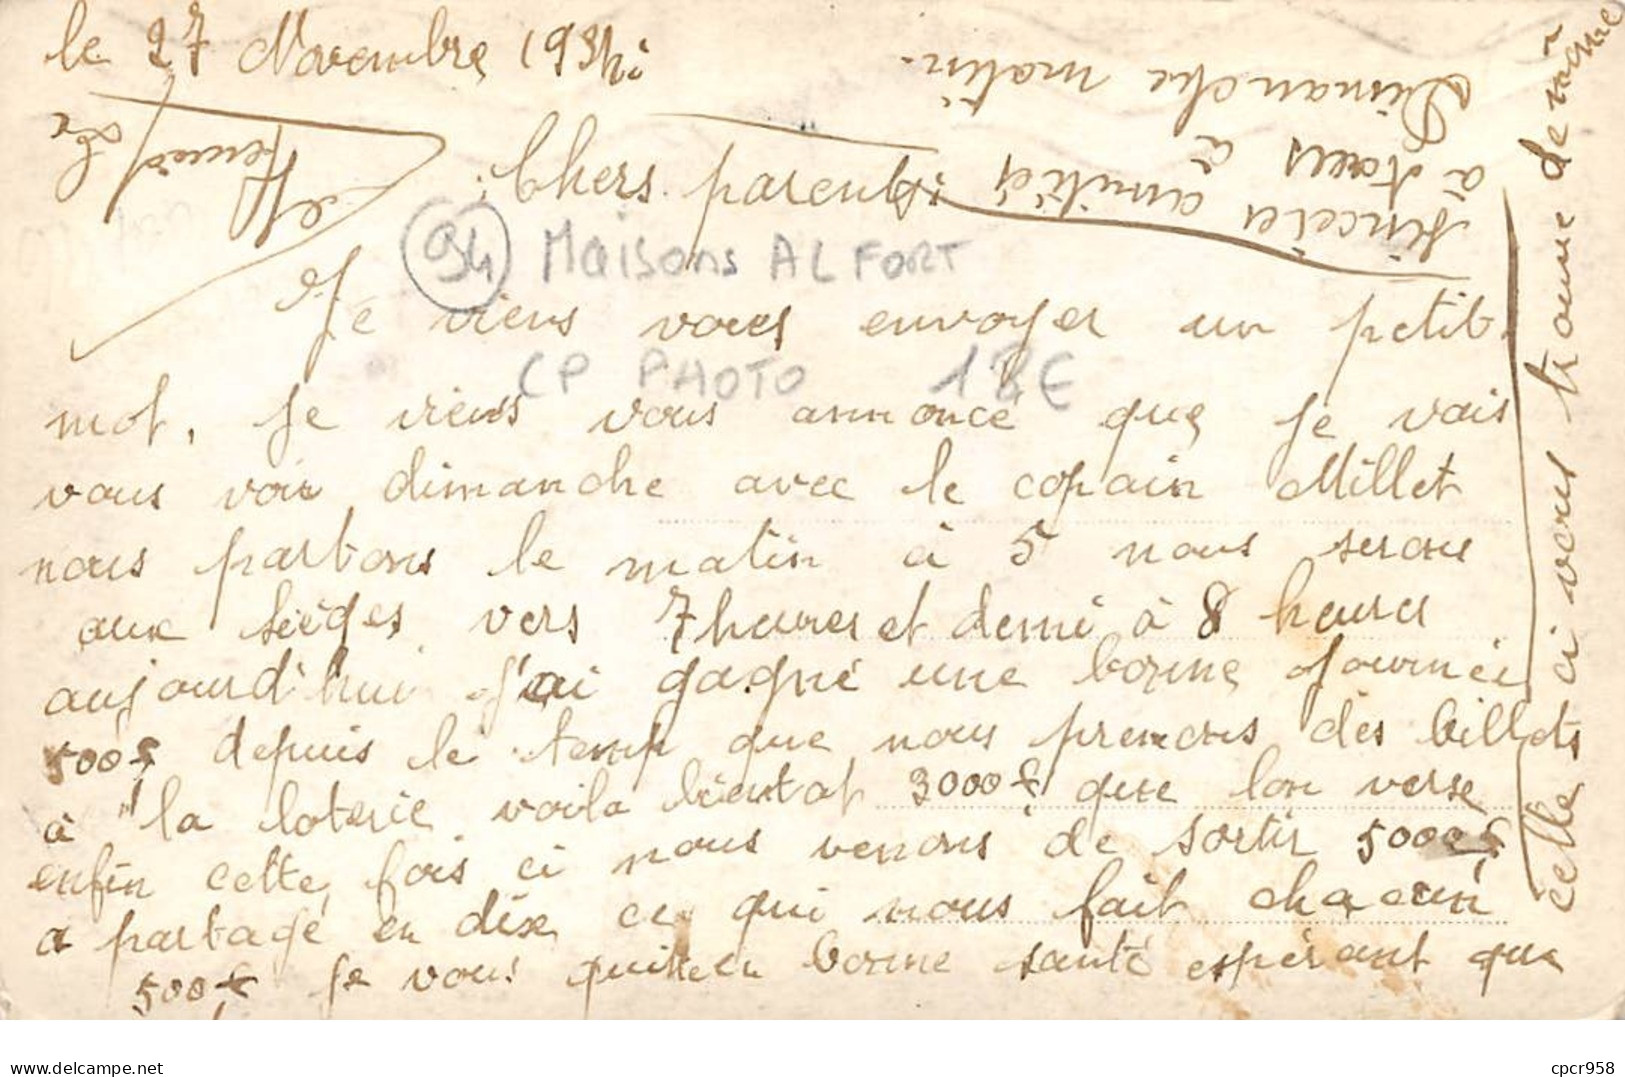 le 27 Novembre 1934:
Chers parents:
Je viens vous envoyer un petit
mot, je viens vous annonce que je vais
vous voir dimanche avec le copain Millet
nous partons le matin à 5 nous serons
aux Sièges vers 7 heures et demi à 8 heures
aujourd'hui j'ai gagné une bonne journée
500f depuis le temp que nous prenons des billets
à la loterie voila bientot 3000f que lon verse
enfin cette fois ci nous venons de sortir 5000f
a partagé en dix ce qui nous fait chacun
500f je vous quitte en bonne santé espérant que
celle ci vous trouve de même
sincères amitiés
à tous à
Dimanche matin.
94 Maisons ALFORT
CP PHOTO 18€
delcampe.net
cpcr958